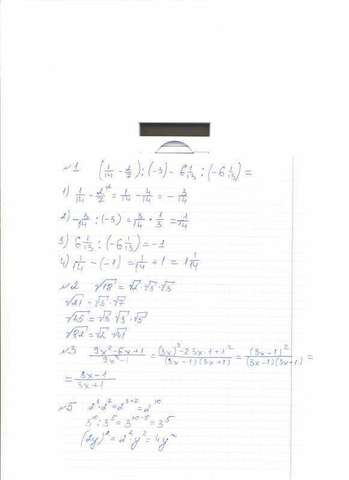 №1 (1/14 - 2/7) : (-3) - 6 1/13 : (-6 1/13) =
1) 1/14 - 2/7 = 1/14 - 4/14 = - 3/14
2) - 3/14 : (-3) = 3/14 * 1/3 = 1/14
3) 6 1/13 : (-6 1/13) = -1
4) 1/14 - (-1) = 1/14 + 1 = 1 1/14
№2 √18 = √2 · √3 · √3
√21 = √3 · √7
√82 = √2 √41
№3 (9x² - 6x + 1)/(9x² - 1) = ((3x)² - 2·3x·1 + 1²)/((3x-1)(3x+1)) = (3x-1)²/((3x-1)(3x+1)) =
= (3x-1)/(3x+1)
№5
3¹⁰ : 3⁵ = 3¹⁰⁻⁵ = 3⁵
(2y)² = 2² · y² = 4y²